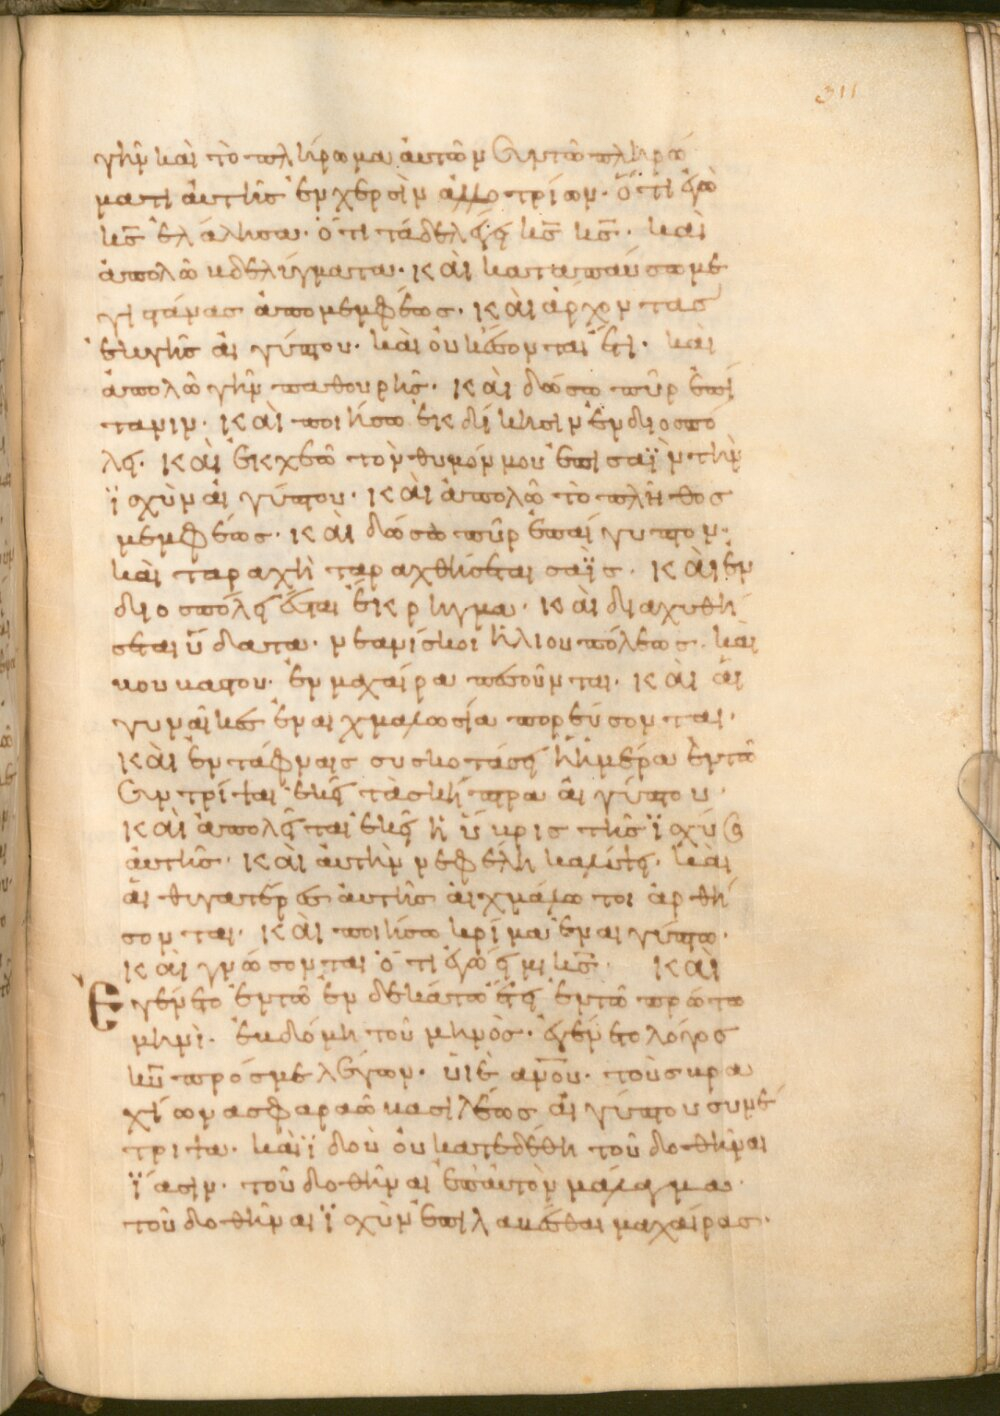 311
γὴν καὶ τὸ πλήρωμα ἀυτῶν σὺν τῶ πληρώ
ματι ἀυτῆς ἐν χερσὶν ἀλλοτρίων· ὅτι ἐγὼ
κ̅ς̅ ἐλάλησα· ὅτι τάδε λέγει κ̅ς̅ κ̅ς̅· καὶ
ἀπολῶ βδελύγματα· καὶ καταπαύσω με
γιστάνας ἀπο μέμφεως· καὶ ἄρχοντας
ἐκ γῆς αἰγύπτου· καὶ ὀυκ ἔσονται ἔτι· καὶ
ἀπολῶ γῆν παθουρῆς· καὶ δώσω πῦρ ἐπὶ
τανιν· καὶ ποιήσω ἐκδίκησιν ἐν διοσπό
λει· καὶ ἐκχεῶ τὸν θυμόν μου ἐπι σαῒν τὴν
ϊσχὺν αἰγύπτου· καὶ ἀπολῶ τὸ πλῆθος
μέμφεως· καὶ δώσω πῦρ ἐπ αἴγυπτον·
καὶ ταραχῆ ταραχθήσεται σαῒς· καὶ ἐν
διοσπόλει ἔσται ἔκρηγμα· καὶ διαχυθή
σεται ὕδατα· νεανίσκοι ἡλίου πόλεως· καὶ
βουβάστου· ἐν μαχαίρα πεσοῦνται· καὶ ἁι
γυνᾶικες ἐν αἰχμαλωσία πορεύσονται·
καὶ ἐν τάφναις συσκοτάσει ἡ ἡμέρα ἐν τῶ
συντρίψαι ἐκεῖ τὰ σκήπτρα αἰγύπτου·
καὶ ἀπολεῖται ἐκεῖ ἡ ὕβρις τῆς ϊσχύος
ἀυτῆς· καὶ ἀυτὴν νεφέλη καλύψει· καὶ
ἁι θυγατέρες ἀυτῆς ἀιχμάλωτοι ἀρθή
σονται· καὶ ποιήσω κρίμα ἐν αἰγύπτω·
καὶ γνώσονται ὅτι ἐγώ εἰμι κ̅ς̅· καὶ
ἐγένετο ἐν τῶ ἑνδεκάτω ἔτει ἐν τῶ πρώτω
μηνὶ· ἑβδόμη τοῦ μηνὸς· ἐγένετο λόγος
κ̅υ̅ πρός με λέγων· ὑιὲ α̅ν̅ο̅υ̅· τοὺς βρα
χίωνας φαραῶ βασιλέως αἰγύπτου συνέ
τριψα· καὶ ϊδοὺ ὀυ κατεδέθη τοῦ δοθῆναι
ϊασιν· τοῦ δοθῆναι ἐπ ἀυτὸν μάλαγμα·
τοῦ δοθῆναι ϊσχὺν ἐπιλαβέσθαι μαχαίρας·